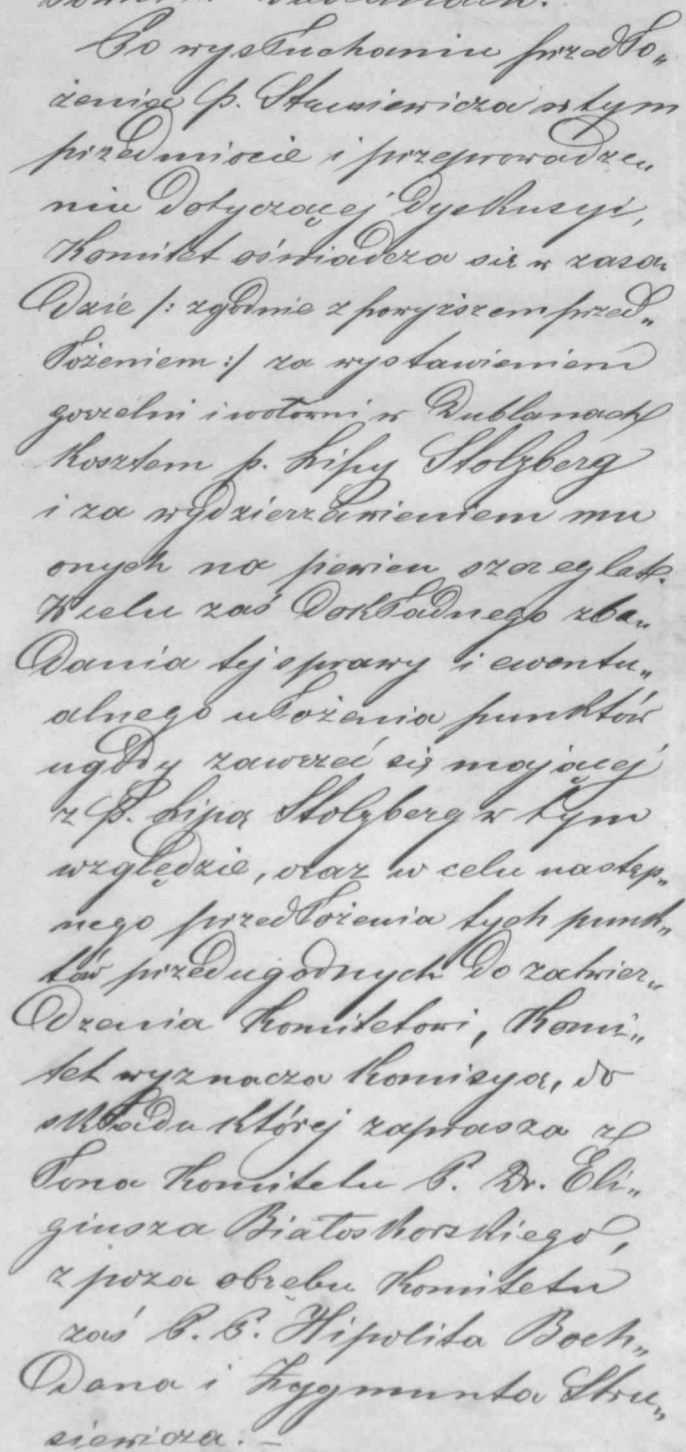 Po wysłuchaniu przedło„
żenia p. Strusiewicza w tym
przedmiocie i przeprowadze„
niu dotyczącej dyskusyi,
Komitet oświadcza się w zasa„
dzie /: zgodnie z powyższem przed„
łożeniem :/ za wystawieniem
gorzelni i wołowni w Dublanach
kosztem p. Lipy Stolzberg
i za wydzierżawieniem mu
onych na pewien szereg lat.
W celu zaś dokładnego zba„
dania tej sprawy i ewentu„
alnego ułożenia punktów
ugody zawrzeć się mającej
z P. Lipą Stolzberg w tym
względzie, oraz w celu następ„
nego przedłożenia tych punk„
tów przedugodnych do zatwier„
dzenia Komitetowi, Komi„
tet wyznacza Komisyą, do
składu której zaprasza z
łona Komitetu P. Dr. Eli„
giusza Białoskorskiego,
z poza obrębu Komitetu
zaś P. P. Hipolita Boch„
dana i Zygmunta Stru„
siewicza. –